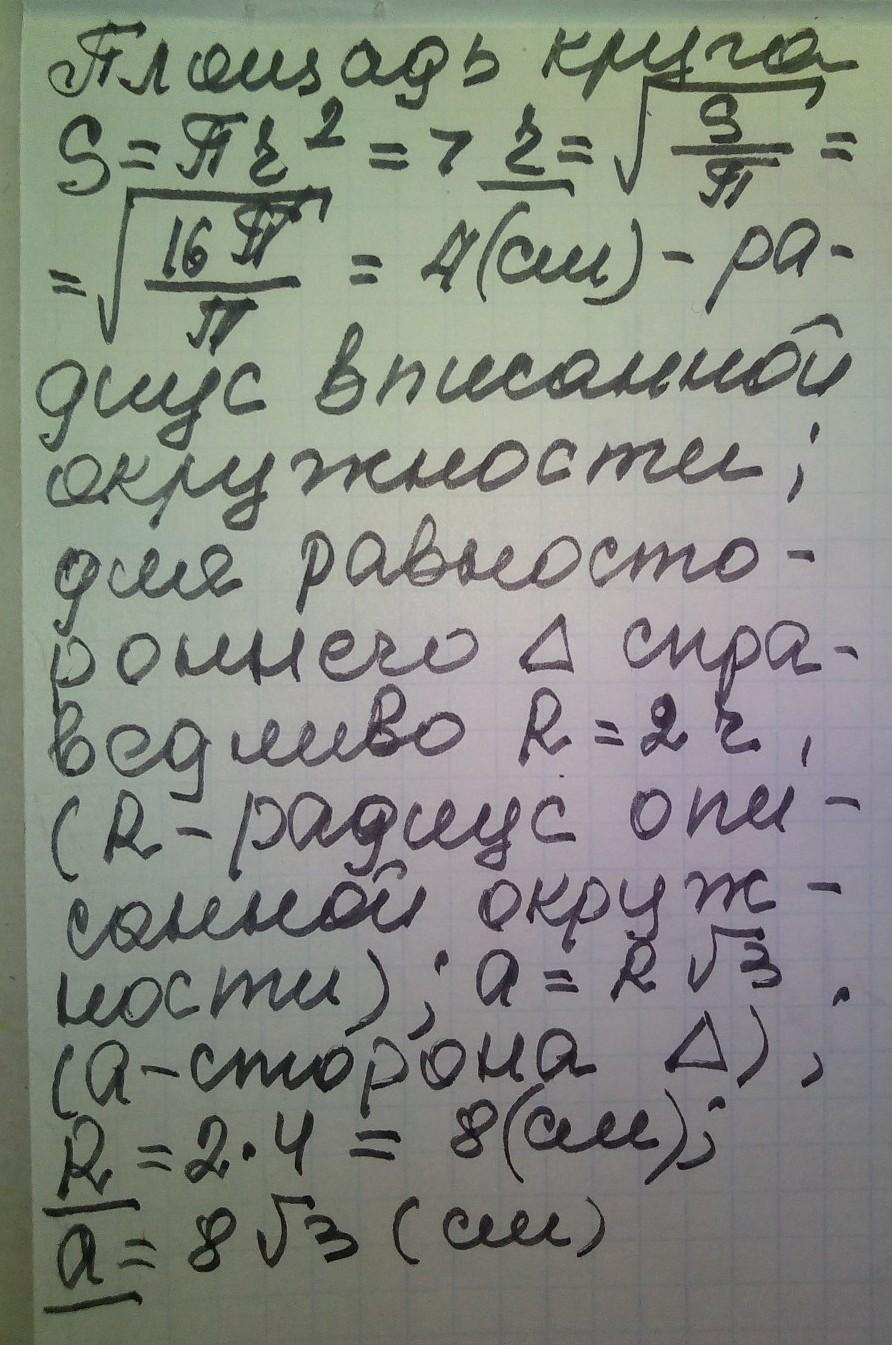 Площадь круга
S = πr² => r = √(S/π) =
= √(16π/π) = 4(см) - ра-
диус вписанной
окружности;
для равносто-
роннего Δ спра-
ведливо R = 2r,
(R - радиус опи-
санной окруж-
ности); a = R√3.
(a - сторона Δ);
R = 2·4 = 8(см);
a = 8√3 (см)